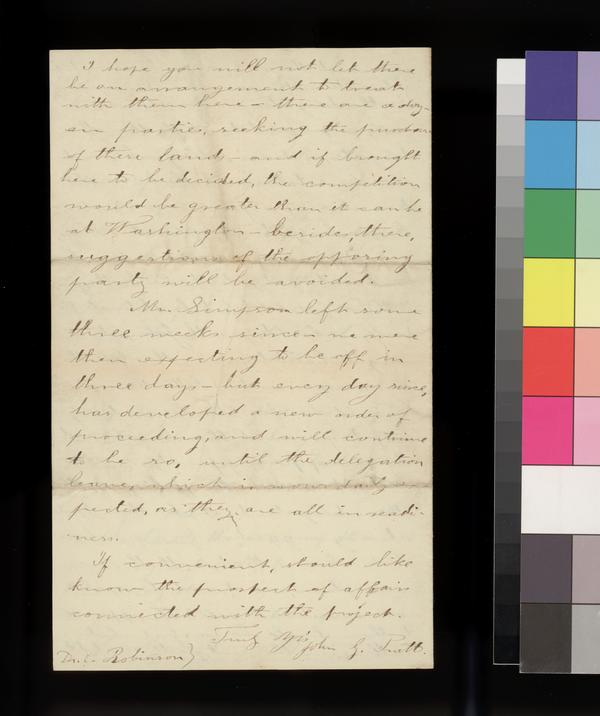 I hope you will not let there
be an arrangement to treat
with them here – there are a doz-
en parties, seeking the purchase
of these lands – and if brought
here to be decided, the competition
would be greater than it can be
at Washington – besides, there,
suggestions of the opposing
party will be avoided.
Mr. Simpson left some
three weeks since – we were
then expecting to be off in
three days – but every day since,
has developed a new order of
proceeding, and will continue
to be so, until the delegation
leave, which is now daily ex-
pected, as they are all in readi-
ness.
If convenient, should like
know the prospect of affairs
connected with the project.
Truly Yrs
John G. Pratt.
Dr. C. Robinson}